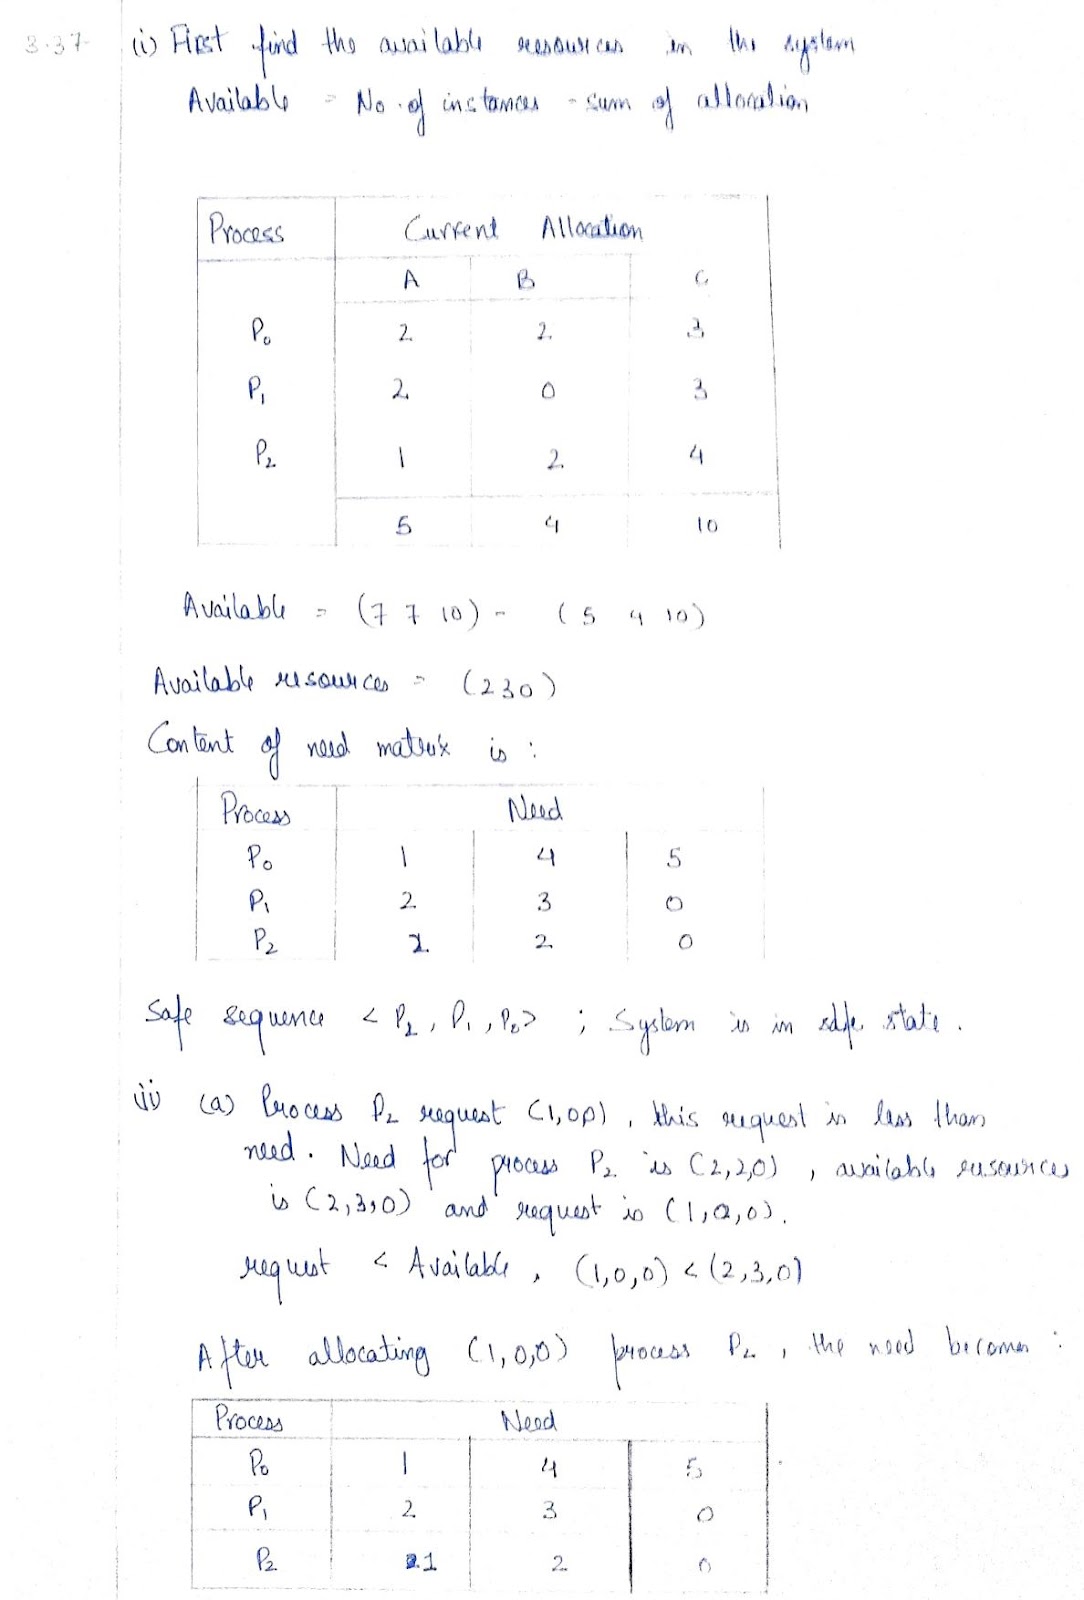 3.37 (i) First find the available resources in the system
Available = No. of instances - sum of allocation
Process Current Allocation
A B C
P0 2 2 3
P1 2 0 3
P2 1 2 4
5 4 10
Available = (7 7 10) - (5 4 10)
Available resources = (2 3 0)
Content of need matrix is :
Process Need
P0 1 4 5
P1 2 3 0
P2 2 2 0
Safe sequence < P2, P1, P0> ; System is in safe state.
ii) (a) Process P2 request (1,00), this request is less than
need. Need for process P2 is (2,2,0), available resources
is (2,3,0) and request is (1,0,0).
request < Available, (1,0,0) < (2,3,0)
After allocating (1,0,0) process P2, the need becomes :
Process Need
P0 1 4 5
P1 2 3 0
P2 1 2 0